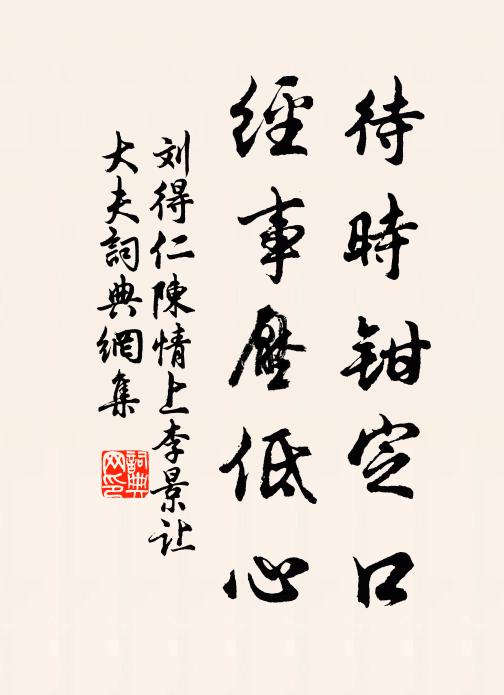 待時鉗定口
經事壓低心
刘得仁陳情上李景让
大夫詞典網集
詞典
网印